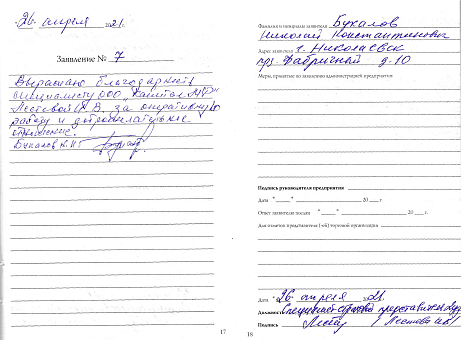 "26" апреля 2021.
Заявление № 7
Выражаю благодарность
специалисту ООО "Капитал МС"
Лестевой И.В. за оперативную
работу и доброжелательное
отношение.
Букалов Н.К.
17
Фамилия и инициалы заявителя Букалов
Николай Константинович
Адрес заявителя г. Николаевск
пр. Фабричный д-10
Меры, принятые по заявлению администрацией предприятия:
Подпись руководителя предприятия
Дата "___"___ 20___ г.
Ответ заявителю послан "___"___ 20___ г.
Для отметок представителя (-ей) торговой организации
Дата "26" апреля 2021.
Должность специалист
Подпись
18